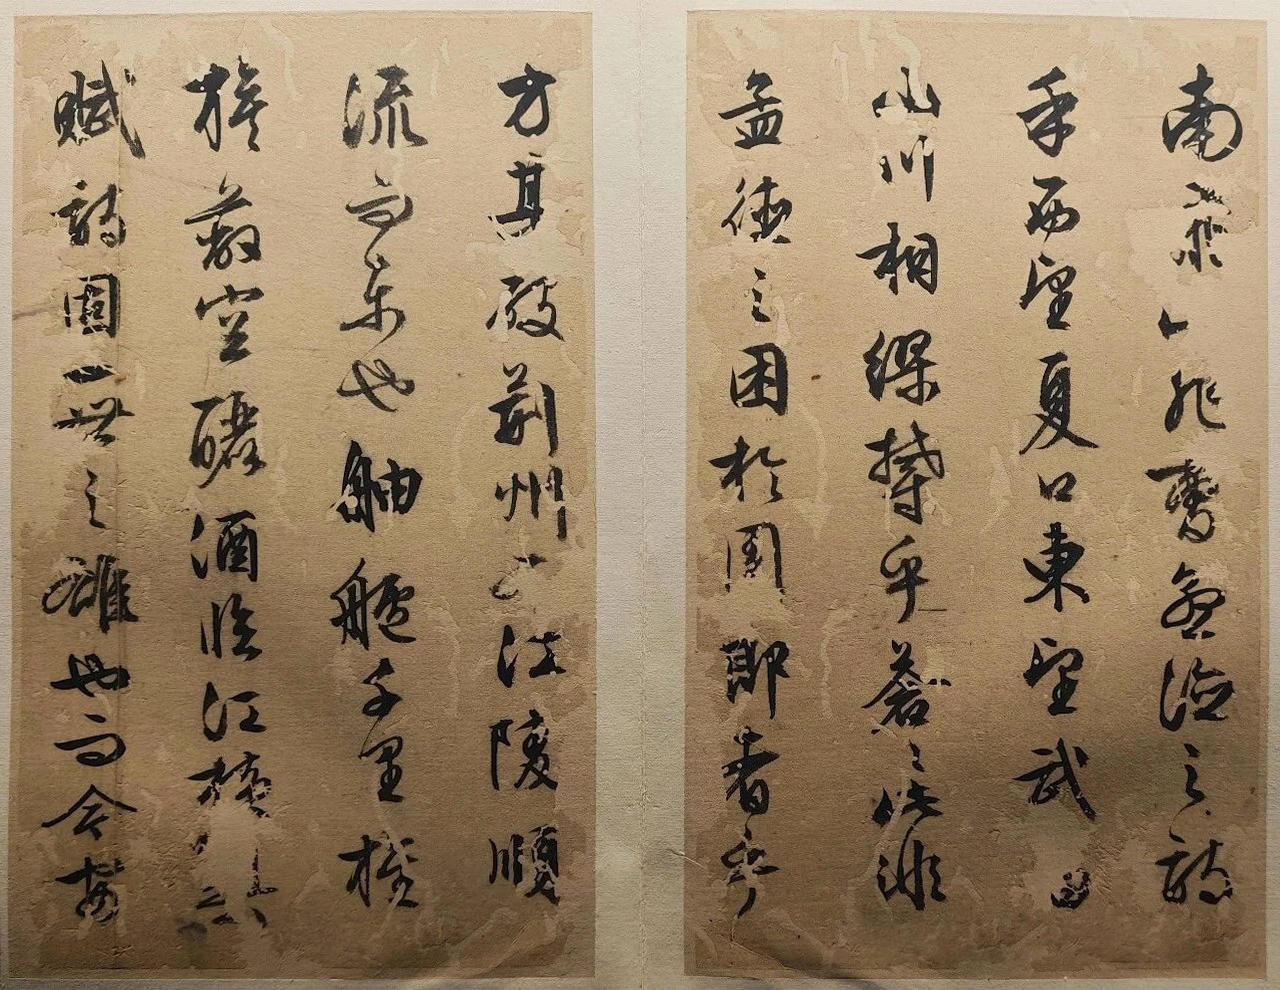 南飛非曹孟德之詩
乎西望夏口東望武昌
山川相繆鬱乎蒼〻此非
孟德之困於周郎者乎
方其破荊州下江陵順
流而東也舳艫千里旌
旗蔽空釃酒臨江橫
賦詩固一世之雄也而今安